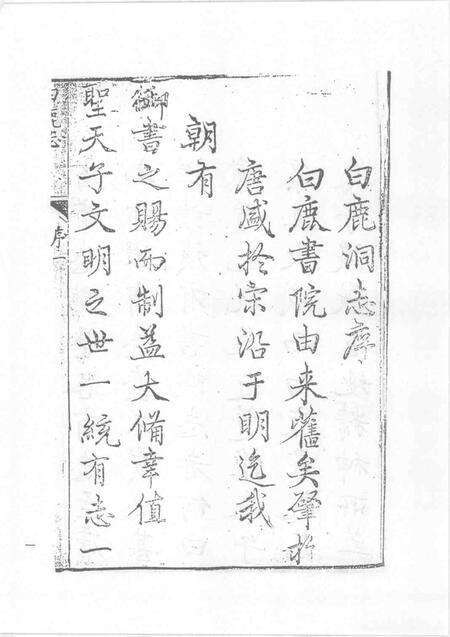 白鹿洞志序
白鹿書院由来舊矣肇於
唐盛於宋沿于明迄我
朝有
御書之賜而制益大備幸值
聖天子文明之世一統有志一
白鹿志
序一